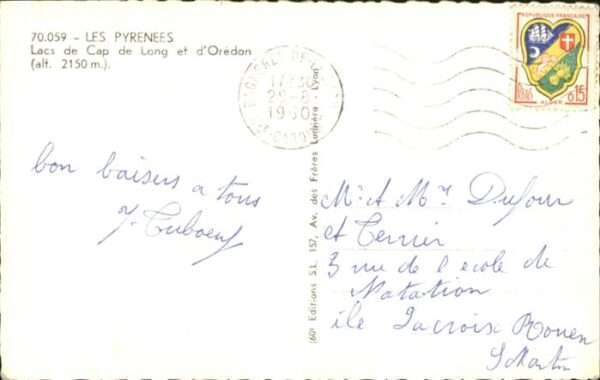 70.059 - LES PYRENEES
Lacs de Cap de Long et d'Orédon
(alt. 2150 m.).
BAGNÈRES DE
29-8
1960
RÉPUBLIQUE FRANÇAISE
POSTES
0,15
ALGER
bon baisers a tous
J. Tuboeuf
160e Editions S.L. 157, Av. des Frères Lumière - Lyon
Mr et Mme Dufour
et Terrier
3 rue de l'école de
Natation
île Lacroix Rouen
S Martin